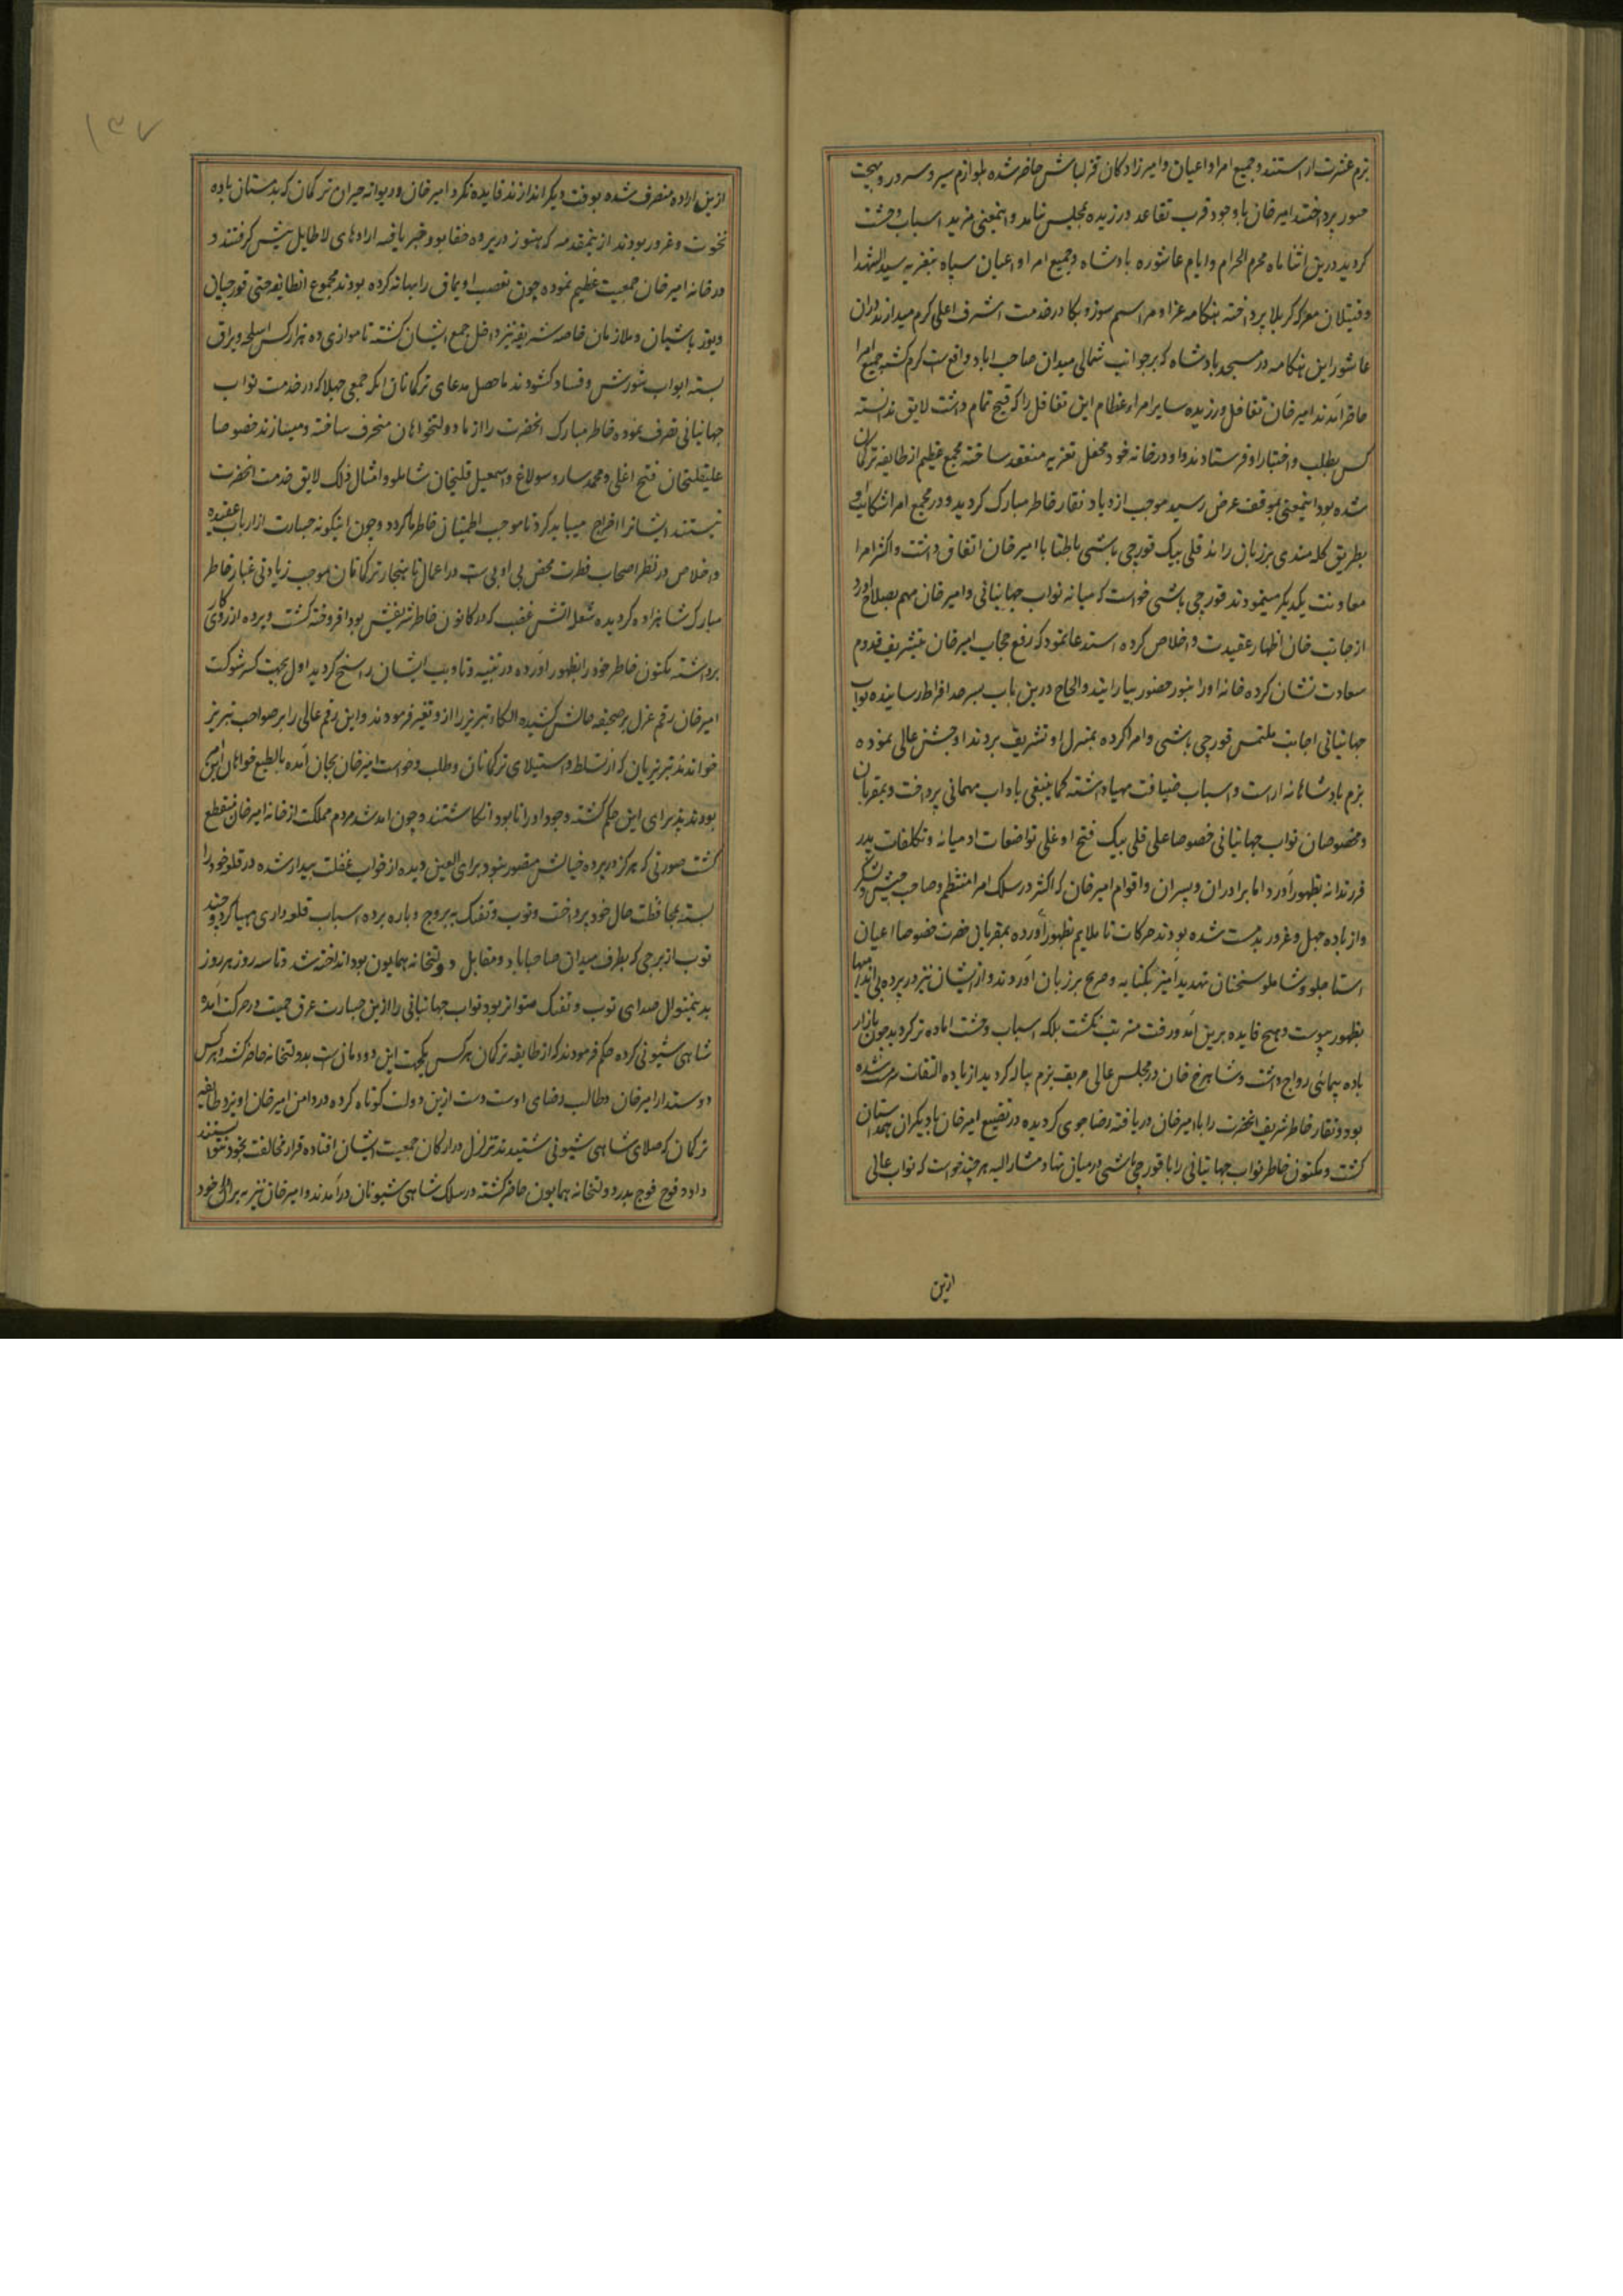 بزم عشرت اراستند و جمیع امرا و اعیان و امیرزادکان قزلباش حاضر شده بلوازم سیر و سرور و بهجت
حبور پرداختند امیر خان باوجود قرب تقاعد ورزیده بمجلس نیامد و اینمعنی مزید اسباب وحشت
کردید درین اثنا ماه محرم الحرام و ایام عاشوره بادشاه و جمیع امرا و اعیان سپاه بتعزیه سید الشهدا
و قتیلان معرکه کربلا پرداخته هنکامه عزا و مراسم سوز و بکا در خدمت اشرف اعلی کرم میدارند دران
عاشورا این هنکامه در مسجد بادشاه که بر جوانب شمالی میدان صاحب اباد واقع است کرم کشته جمیع امرا
حاضر آمدند امیر خان تغافل ورزیده سایر امراء عظام این تغافل را که قبح تمام داشت لایق ندانسته
کس بطلب و اختبار او فرستادند و او در خانه خود محفل تعزیه منعقد ساخته مجمع عظیم از طایفه ترکمان
شده بود اینمعنی بموقف عرض رسید موجب ازدیاد نقار خاطر مبارک کردید و در مجمع امرا شکایت او
بطریق کله مندی بر زبان راند قلی بیک قورچی باشی باطنا با امیر خان اتفاق داشت و اکثر امرا
معاونت یکدیکر مینمودند قورچی باشی خواست که میانه نواب جهانبانی و امیر خان مهم بصلاح اورد
از جانب خان اظهار عقیدت و اخلاص کرده استدعا نمود که رفع حجاب امیر خان بتشریف قدوم
سعادت نشان کرده خانه او را بنور حضور بیارایند و الحاح درین باب بسر حد افراط رسانیده نواب
جهانبانی اجابت ملتمس قورچی باشی و امرا کرده بمنزل او تشریف بردند او جشن عالی نموده
بزم بادشاهانه اراست و اسباب ضیافت مهیا داشته کما ینبغی باداب مهمانی پرداخت و بمقربان
و مخصوصان نواب جهانبانی خصوصا علی قلی بیک فتح اوغلی تواضعات ادمیانه و تکلفات پدر
فرزندانه بظهور آورد اما برادران و پسران و اقوام امیر خان که اکثر در سلک امرا منتظم و صاحب جیش و لشکر
و از باده جهل و غرور بدمست شده بودند حرکات ناملایم بظهور آورده بمقربان حضرت خصوصا اعیان
استاجلو و شاملو سخنان تهدید آمیز بکنایه و صریح بر زبان آوردند و از ایشان نیز در پرده بی اندامیها
بظهور پیوست و هیچ فایده برین آمد و رفت مترتب نکشت بلکه اسباب وحشت اماده تر کردید چون بازار
باده پیمائی رواج داشت و شاهرخ خان در مجلس عالی حریف بزم پیاله کردید از باده التفات سرمست شده
بود و نقار خاطر شریف انحضرت را با امیر خان دریافته رضا جوی کردیده در تضییع امیر خان با دیکران همداستان
کشت و مکنون خاطر نواب جهانبانی را با قورچی باشی درمیان نهاد مشار الیه هر چند خواست که نواب عالی
ازین
ازین اراده منصرف شده بوقت دیکر اندازند فایده نکرد امیر خان و ترکمان که بدمستان باده
نخوت و غرور بودند ازینمقدمه که هنوز در پرده خفا بود خبر یافته ارادهای لا طایل پیش کرفتند و
در خانه امیر خان جمعیت عظیم نموده چون تعصب اویماق را بهانه کرده بودند مجموع انطایفه حتی قورچیان
و یوز باشیان و ملازمان خاصه شریفه نیز داخل جمع ایشان کشته تا موازی ده هزار کس اسلحه و یراق
بسته ابواب شورش و فساد کشودند ماحصل مدعای ترکمانان انکه جمعی جهلا که در خدمت نواب
جهانبانی تصرف نموده خاطر مبارک انحضرت را از ما دولتخواهان منحرف ساخته و میسازند خصوصا
علیقلیخان فتح اغلی و محمد ساروسولاغ و اسمعیل قلیخان شاملو و امثال ذلک لایق خدمت انحضرت
نیستند ایشانرا اخراج میباید کرد تا موجب اطمینان خاطر ما کردد و چون اینکونه جسارت از ارباب عقیده
و اخلاص در نظر اصحاب فطرت محض بی ادبی است اعمال ناهنجار ترکمانان موجب زیادتی غبار خاطر
مبارک شاهزاده کردیده شعل اتش غضب که در کانون خاطر شریفش بود افروخته کشت و پرده از روی کار
برداشته مکنون خاطر خود را بظهور آورده در تنبیه و تادیب ایشان راسخ کردید اول بجهت کسر شوکت
امیر خان رقم عزل بر صحیفه حالش کشیده الکاء تبریز را از و تغیر فرمودند و این رقم عالی را بر صواحب تبریز
خواندند تبریزیان که از تسلط و استیلای ترکمانان و طلب و خواست امیر خان بجان آمده بالطبع خواهان این
بودند پذیرای این حکم کشته وجود او را نابود انکاشتند و چون امد شد مردم مملکت از خانه امیر خان منقطع
کشت صورتی که هرکز در پرده خیالش متصور نبود برای العین دیده از خواب غفلت بیدار شده در قلعه خود را
بسته بمحافظت حال خود پرداخت و توب و تفنک به بروج و باره برده اسباب قلعه داری مهیا کرد و چند
توب از برجی که بطرف میدان صاحباباد و مقابل دولتخانه همایون بود انداخته شد و تا سه روز هر روز
بدینمنوال صدای توب و تفنک متواتر بود نواب جهانبانی را ازین جسارت عرق حمیت در حرکت آمده
شاهی شیونی کرده حکم فرمودند که از طایفه ترکمان هر کس یکجهت این دودمان است بدولتخانه حاضر کشته و هر کس
دوستدار امیر خان و طالب رضای اوست دست ازین دولت کوتاه کرده در دامن امیر خان اویزد طایفه
ترکمان که صلای شاهی شیونی شنیدند تزلزل در ارکان جمعیت ایشان افتاده قرار مخالفت بخود نتوانستند
داد و فوج فوج بدر دولتخانه همایون حاضر کشته در سلک شاهی شیونان درآمدند و امیر خان نیز خود
۱۳۷